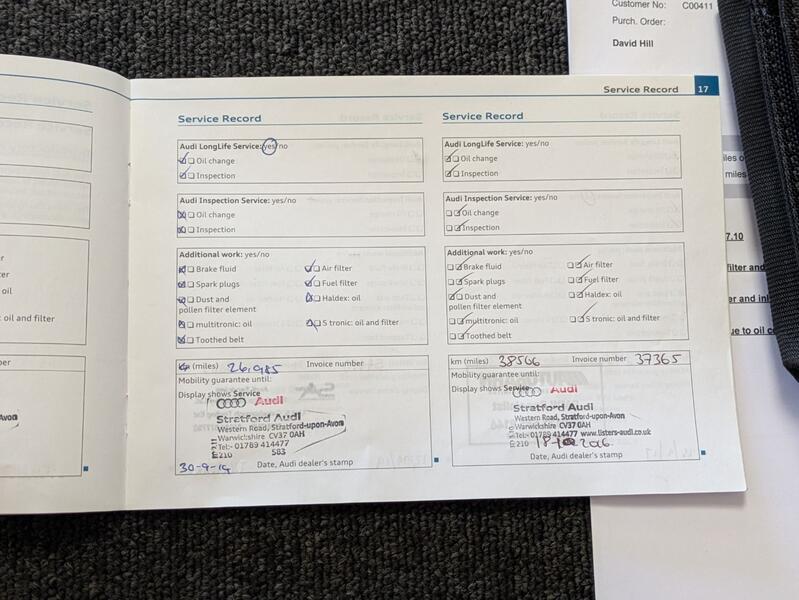 Customer No: C00411
Purch. Order:
David Hill
Service Record 17
Service Record
Audi LongLife Service: yes/no
Oil change
Inspection
Audi Inspection Service: yes/no
Oil change
Inspection
Additional work: yes/no
Brake fluid
Air filter
Spark plugs
Fuel filter
Dust and
pollen filter element
Haldex: oil
multitronic: oil
S tronic: oil and filter
Toothed belt
km (miles) 26,985 Invoice number
Mobility guarantee until:
Display shows Service
Audi
Stratford Audi
Western Road, Stratford-upon-Avon
Warwickshire CV37 0AH
Tel:- 01789 414477
E210 S83
30-9-14 Date, Audi dealer's stamp
Service Record
Audi LongLife Service: yes/no
Oil change
Inspection
Audi Inspection Service: yes/no
Oil change
Inspection
Additional work: yes/no
Brake fluid
Air filter
Spark plugs
Fuel filter
Dust and
pollen filter element
Haldex: oil
multitronic: oil
S tronic: oil and filter
Toothed belt
km (miles) 38566 Invoice number 37365
Mobility guarantee until:
Display shows Service
Audi
Stratford Audi
Western Road, Stratford-upon-Avon
Warwickshire CV37 0AH
Tel:- 01789 414477 www.listers-audi.co.uk
E210
Date, Audi dealer's stamp
oil
oil and filter
miles
7.10
filter and
ue to oil